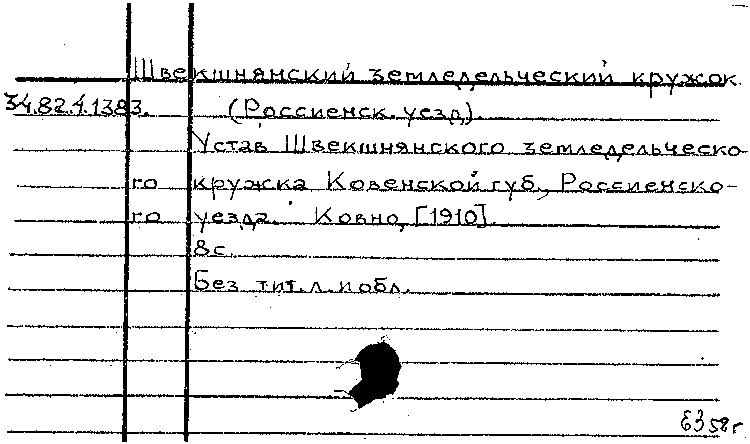 Швекшнянский земледельческий кружок.
34.82.4.1383. (Россиенск. уезд).
Устав Швекшнянского земледельческо-
го кружка Ковенской губ., Россиенско-
го уезда. Ковно, [1910].
8с.
Без тит. л. и обл.